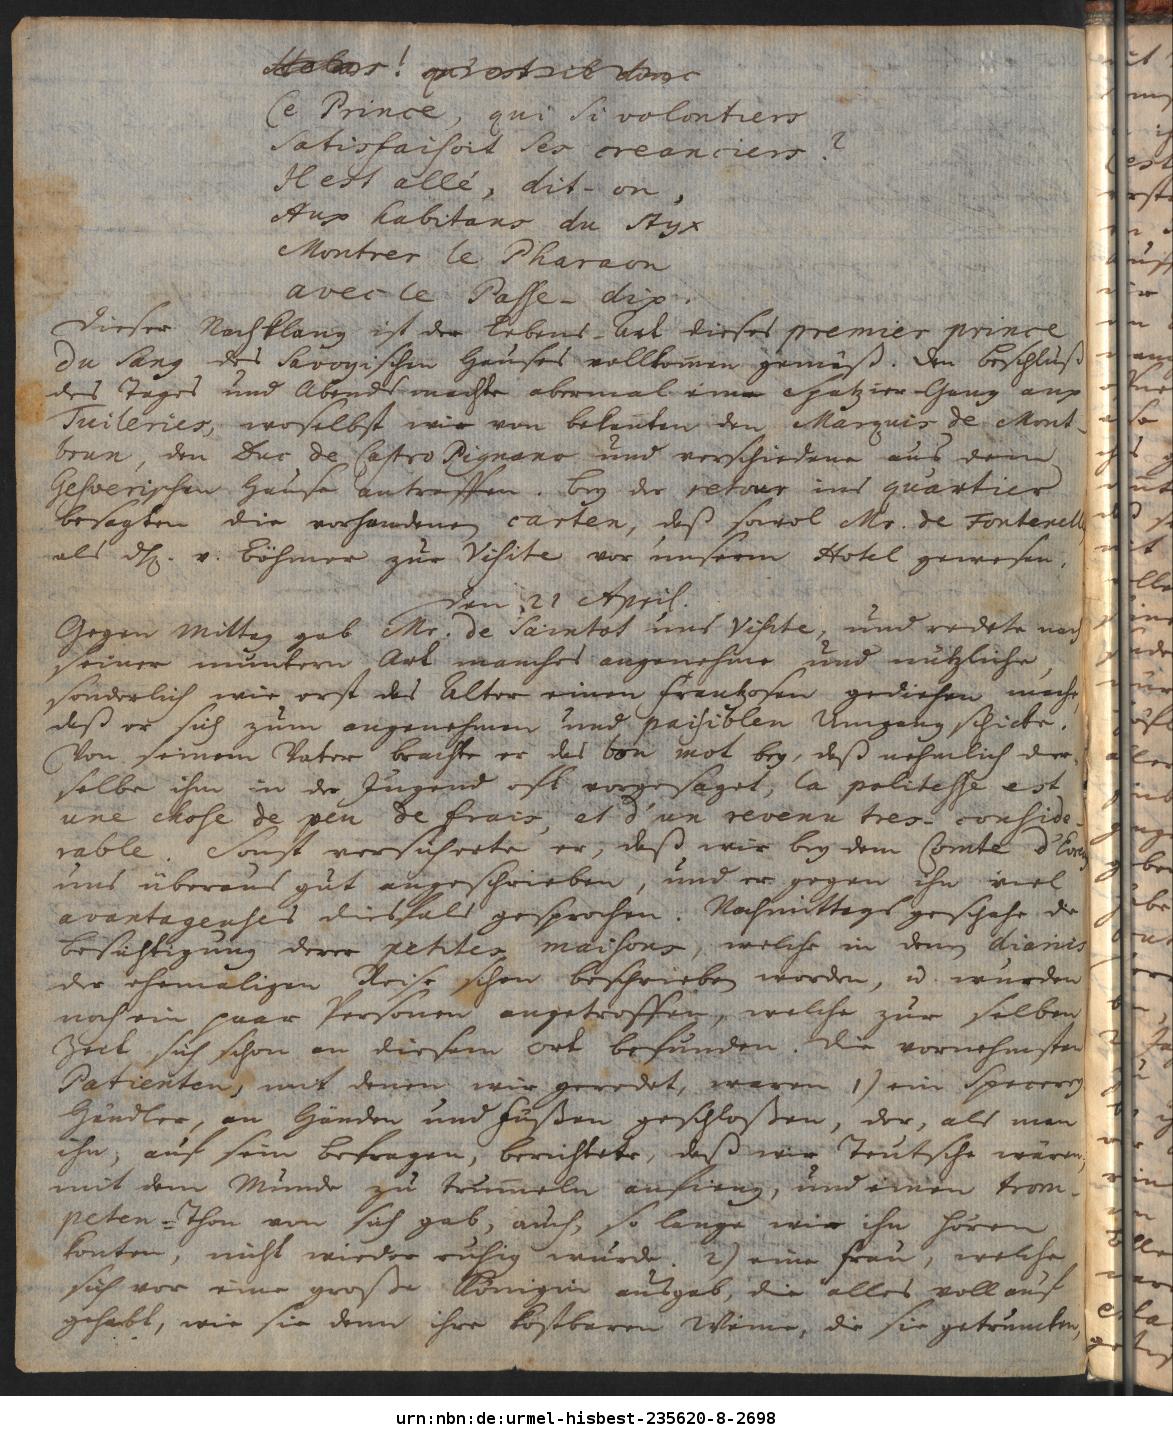 Helas! qu'est-il donc
Ce Prince, qui si volontiers
Satisfaisoit ses creanciers?
Il est allé, dit-on,
Aux habitans du Styx
Montrer le Pharaon
avec le Passe-dix.
Dieser Nachklang ist der Lebens-Art dieses premier prince
du sang des Savoyischen Hauses vollkom̅en gemäß. Den beschluß
des Tages und Abends machte abermal eine Spatzier-Gang aux
Tuileries, woselbst wir von bekanten den Marquis de Mont-
brun, den Duc de Castro Pignano und verschiedene aus dem
Gesverischen Hause antraffen. bey der retour ins quartier
besagten die vorhandenen carten, daß sowol Mr. de Fontenelle
als v. Böhmer zur Visite vor unserm Hotel gewesen.
den 21 April.
Gegen Mittag gab Mr. de Saintot uns Visite, und redete nach
seiner muntern Art manches angenehme und nützliche,
sonderlich wie erst das Alter einen Frantzosen gediehen mache,
daß er sich zum angenehmen und paisiblen Umgang schicke.
Von seinem Vater brachte er das bon mot bey, daß nehmlich der-
selbe ihm in der Jugend oft vorgesaget, la politesse est
une chose de peu de frais, et d'un revenu tres-conside-
rable. Sonst versicherte er, daß wir bey dem Comte d'
uns überaus gut angeschrieben, und er gegen ihn viel
avantageuses diesfals gesprochen. Nachmittags geschahe die
besichtigung derer petites maisons, welche in dem diariis
der ehemaligen Reise schon beschrieben worden, u. wurden
noch ein paar Personen angetroffen, welche zur selben
Zeit sich schon an diesem ort befunden. Die vornehmsten
Patienten, mit denen wir geredet, waren 1) ein Specerey
Händler, an Händen und Füßen geschloßen, der, als man
ihn, auf sein befragen, berichtete, daß wir Teutsche wären,
mit dem Munde zu trum̅eln anfieng, und einen trom-
peten-Thon von sich gab, auch, so lange wir ihn hören
konten, nicht wieder ruhig wurde. 2) eine Frau, welche
sich vor eine große Königin ausgab, die alles vollauf
gehabt, wie sie denn ihre kostbaren Weine, die sie getruncken,
urn:nbn:de:urmel-hisbest-235620-8-2698